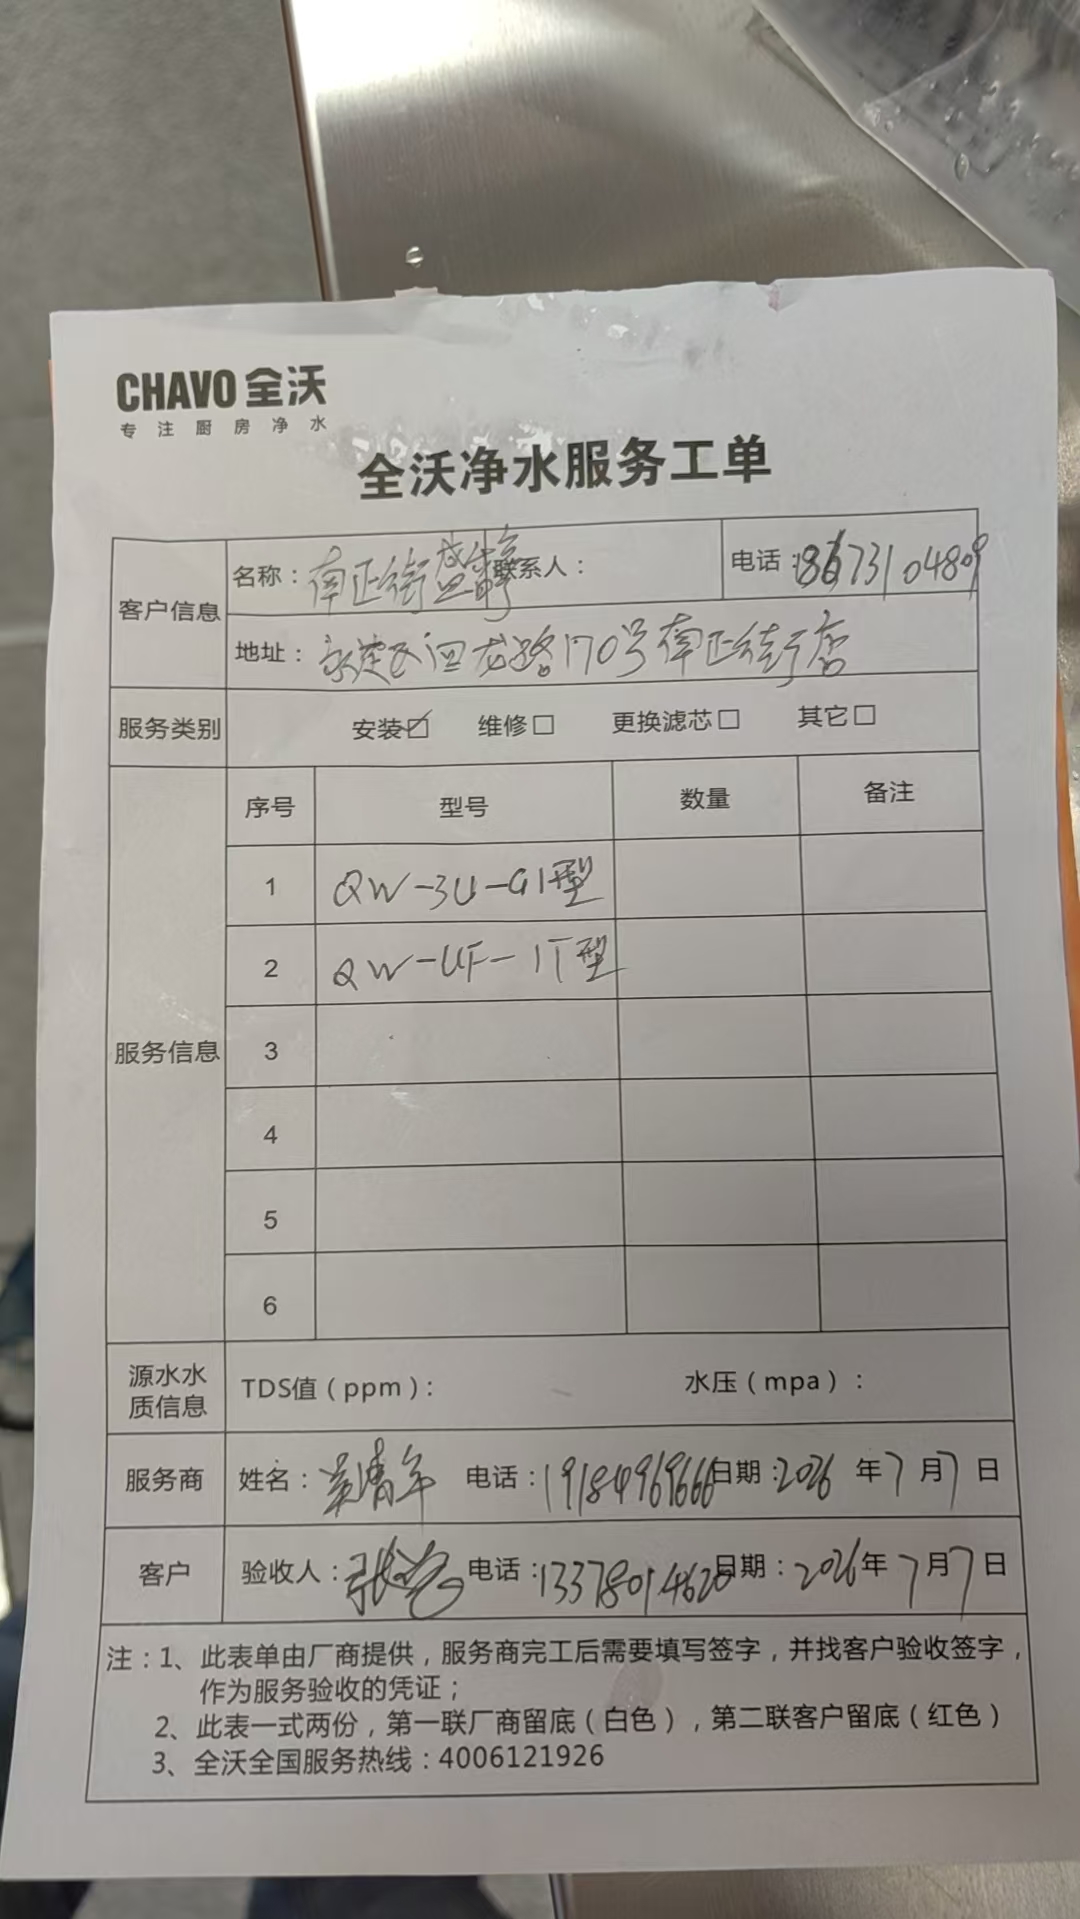 CHAVO 全沃
专注厨房净水
全沃净水服务工单
客户信息
名称：南正街 联系人： 电话：
地址： 回龙路170号南正街店
服务类别 安装☑ 维修□ 更换滤芯□ 其它□
服务信息
序号 型号 数量 备注
1 QW-3U-G1型
2 QW-UF-1T型
3
4
5
6
源水水质信息 TDS值（ppm）： 水压（mpa）：
服务商 姓名： 电话：19184969666 日期：2026年7月7日
客户 验收人： 电话：13378014620 日期：2026年7月7日
注：1、此表单由厂商提供，服务商完工后需要填写签字，并找客户验收签字，
作为服务验收的凭证；
2、此表一式两份，第一联厂商留底（白色），第二联客户留底（红色）
3、全沃全国服务热线：4006121926